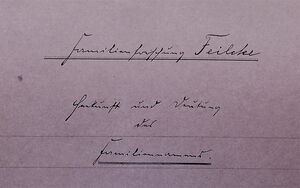 Familienforschung Feilcke
Herkunft und Deutung
des
Familiennamens.